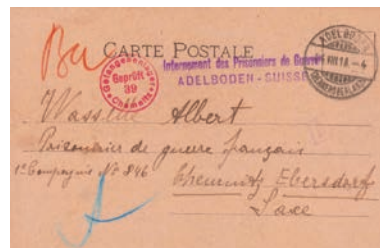 Carte Postale
Internement des Prisonniers de Guerre
ADELBODEN - SUISSE
ADELBODEN
Gefangenenlager
Geprüft
39
Chemnitz
Albert
Prisonnier de guerre français
1e Compagnie No 846
Chemnitz Ebersdorf
Saxe